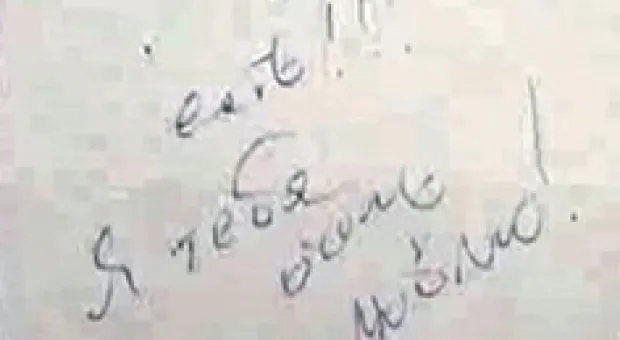 есть!!!
Я тебя
очень
люблю!